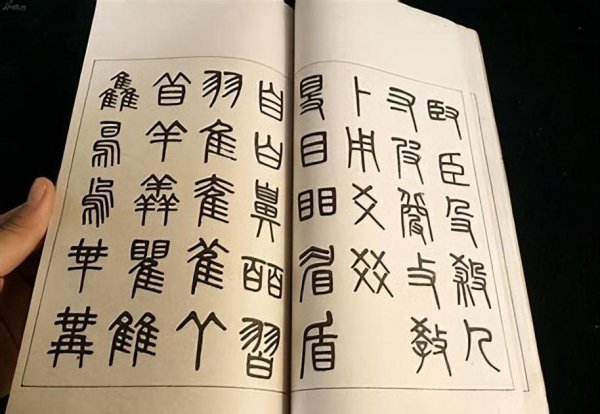 臤臣殳殺𠘧
寸皮㼱攴教
卜用爻㸚
𥄎目䀠眉盾
自白鼻皕習
羽隹奞雈𠁥
𥄕羊羴瞿雔
雥鳥烏𠦒冓